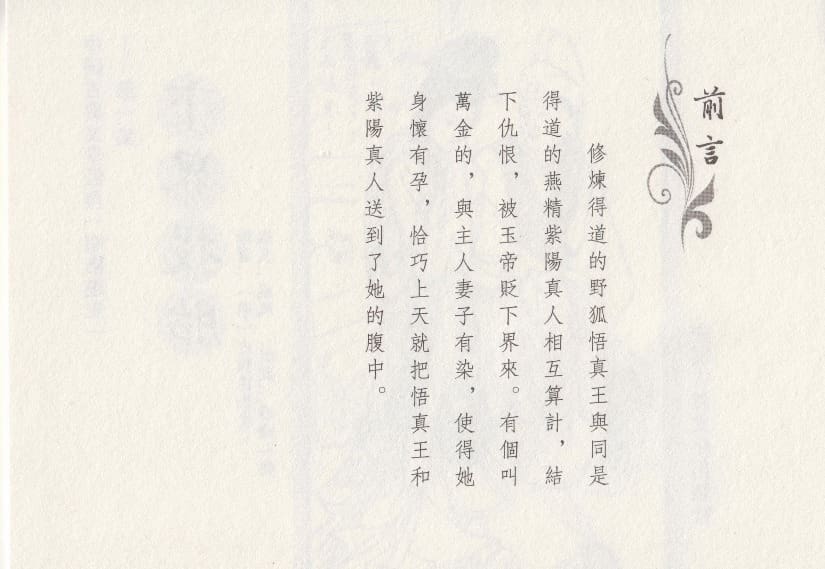 前言
修煉得道的野狐悟真王與同是
得道的燕精紫陽真人相互算計，結
下仇恨，被玉帝貶下界來。有個叫
萬金的，與主人妻子有染，使得她
身懷有孕，恰巧上天就把悟真王和
紫陽真人送到了她的腹中。